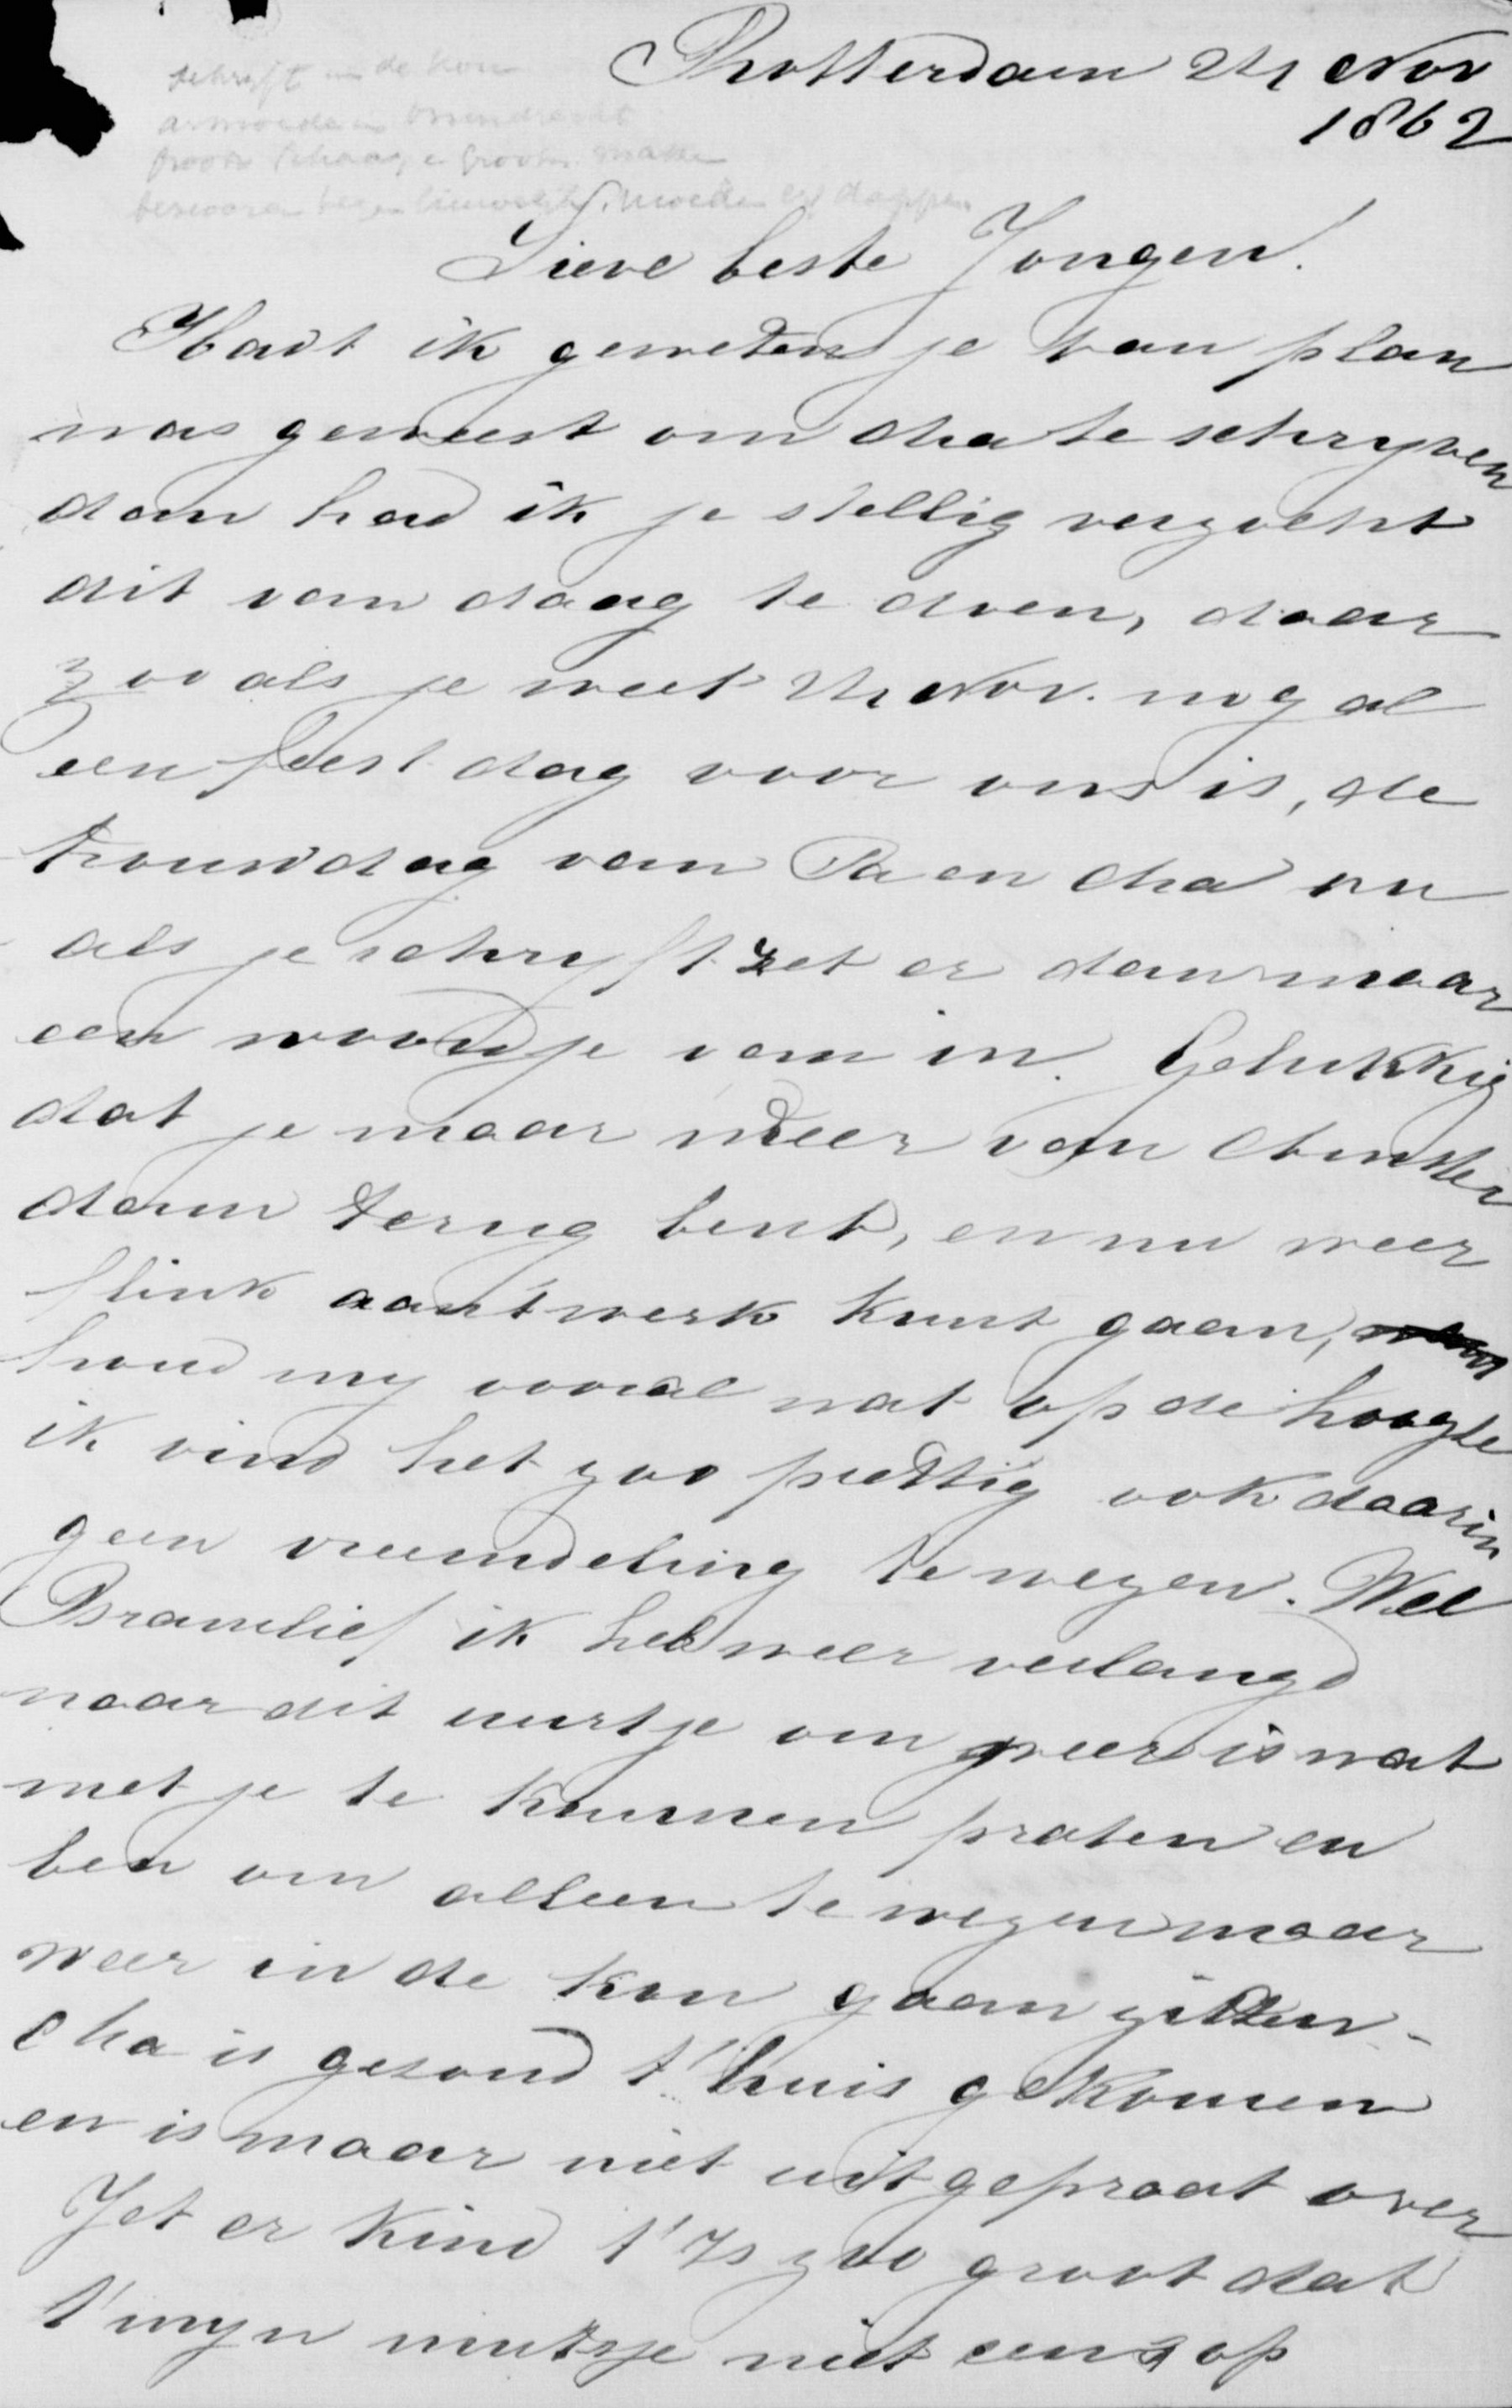 schrijft in de kou
Rotterdam 24 Nov
1862
Lieve beste Jongen!
Hadt ik geweten je van plan
was geweest om Ma te schryven
dan had ik je stellig verzocht
dit van daag te doen, daar
zoo als je weet 24 Nov. nog al
een feest dag voor ons is, de
trouwdag van Pa en Ma nu
als je schryft zet er dan maar
een woordje van in. Gelukkig
dat je maar weer van Amster
dam terug bent, en nu weer
flink aan 't werk kunt gaan,
houd my vooral wat op de hoogte
ik vind het zoo prettig ook daarin
geen vreemdeling te wezen. Wel
Bramlief ik heb weer verlangd
naar dit uurtje om weer is wat
met je te kunnen praten en
ben om alleen te wezen maar
weer in de kou gaan zitten -
Ma is gezond t'huis gekomen
en is maar niet uitgepraat over
Jet er kind t'Is zoo groot dat
t'myn mutsje niet eens op